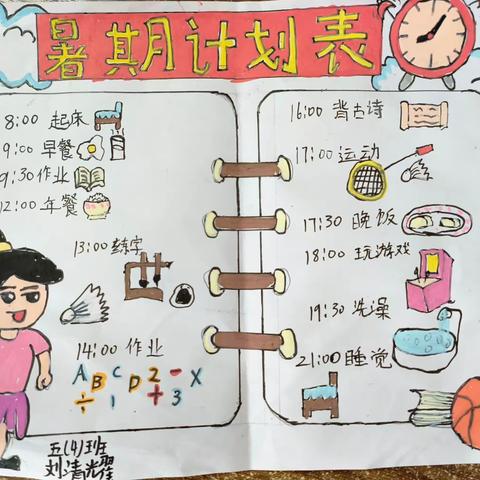 暑期计划表
8:00 起床
9:00 早餐
9:30 作业
12:00 午餐
13:00 练字
14:00 作业
A B C D 2 - X
÷ 1 + 3
16:00 背古诗
17:00 运动
17:30 晚饭
18:00 玩游戏
19:30 洗澡
21:00 睡觉
五(4)班
刘清耀